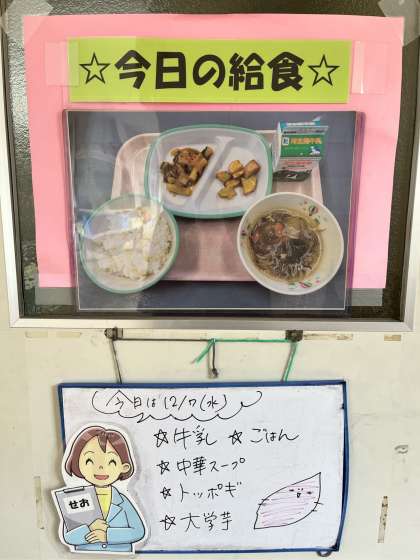 ☆今日の給食☆
今日は12/7(水)
☆牛乳 ☆ごはん
☆中華スープ
☆トッポギ
☆大学芋
せお